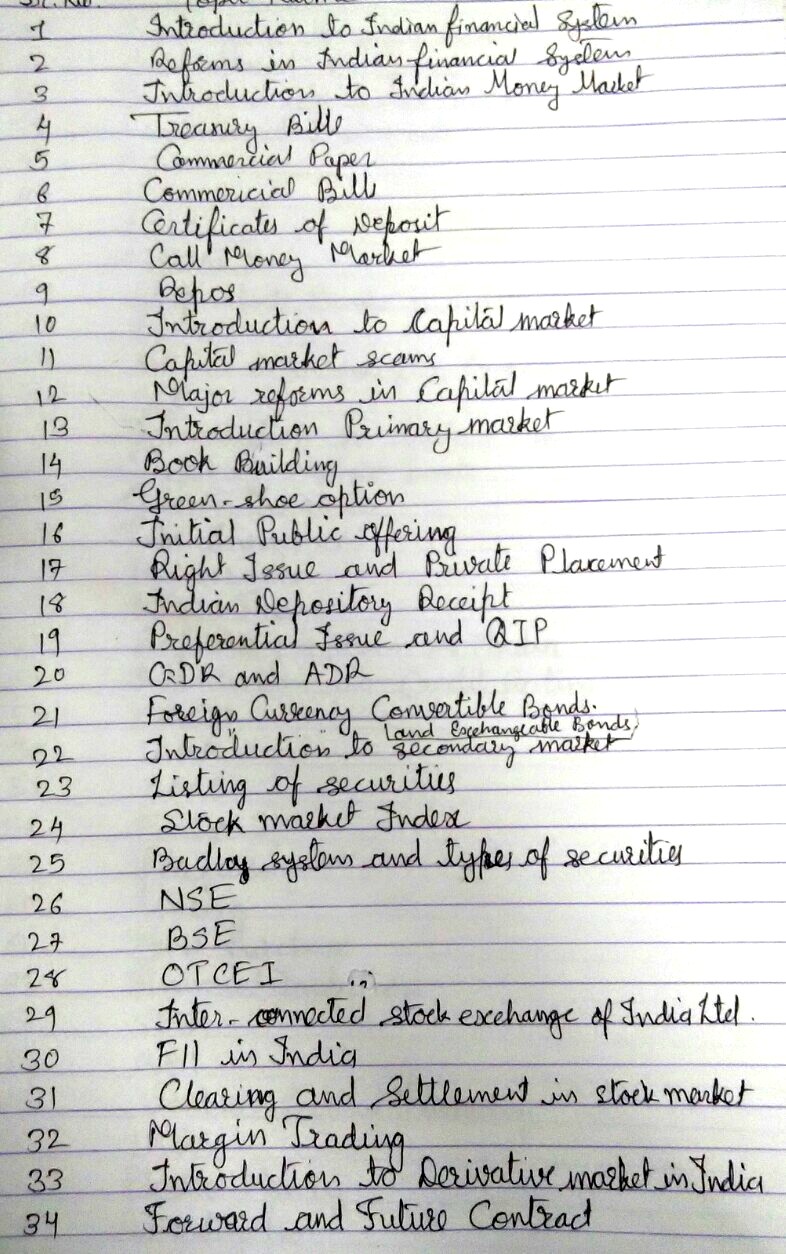 Sr. No. Topic Name
1 Introduction to Indian financial System
2 Reforms in Indian financial System
3 Introduction to Indian Money Market
4 Treasury Bills
5 Commercial Paper
6 Commericial Bills
7 Certificates of Deposit
8 Call Money Market
9 Repos
10 Introduction to Capital market
11 Capital market scams
12 Major reforms in Capital market
13 Introduction Primary market
14 Book Building
15 Green-shoe option
16 Initial Public offering
17 Right Issue and Private Placement
18 Indian Depository Receipt
19 Preferential Issue and QIP
20 GDR and ADR
21 Foreign Currency Convertible Bonds.
(and Exchangeable Bonds)
22 Introduction to secondary market
23 Listing of securities
24 Stock market Index
25 Badlay system and types of securities
26 NSE
27 BSE
28 OTCEI
29 Inter-connected stock exchange of India Ltd.
30 FII in India
31 Clearing and Settlement in stock market
32 Margin Trading
33 Introduction to Derivative market in India
34 Forward and Future Contract